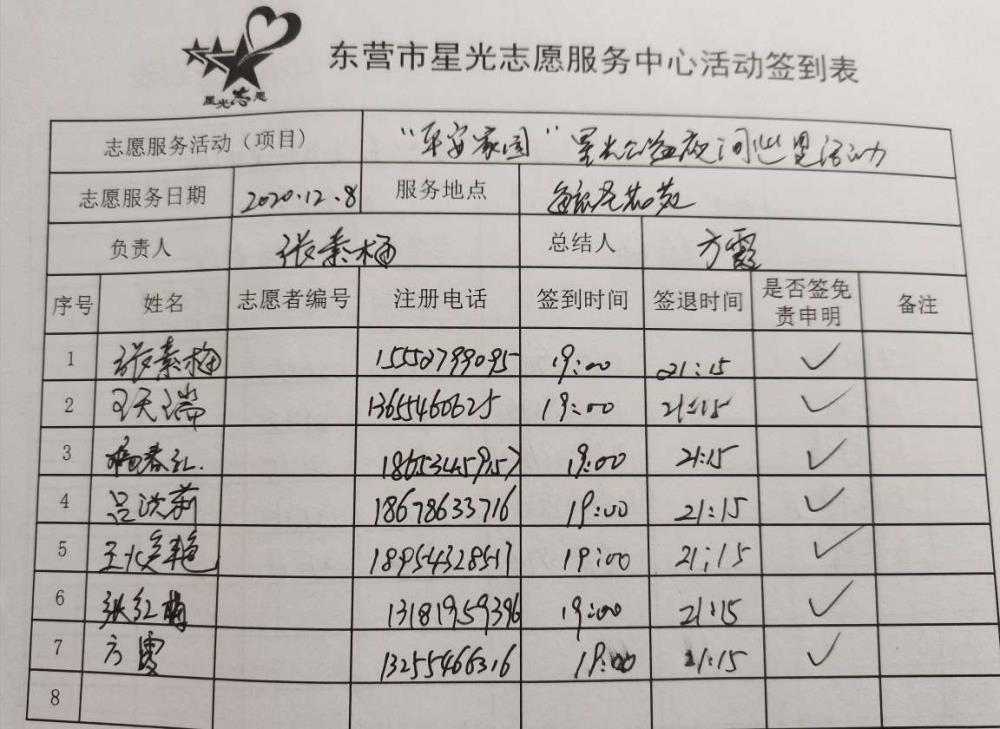 星光志愿
东营市星光志愿服务中心活动签到表
志愿服务活动（项目） “平安家园”星光公益夜间巡逻活动
志愿服务日期 2020.12.8 服务地点
负责人 张素梅 总结人 方霞
序号 姓名 志愿者编号 注册电话 签到时间 签退时间 是否签免责申明 备注
1 张素梅 15550799095 19:00 21:15 ✓
2 王天瑞 13655460625 19:00 21:15 ✓
3 杨春红 18653445957 19:00 21:15 ✓
4 吕洪莉 18678633716 19:00 21:15 ✓
5 王俊艳 18954328517 19:00 21:15 ✓
6 张红梅 13181959396 19:00 21:15 ✓
7 方霞 13255466316 19:00 21:15 ✓
8